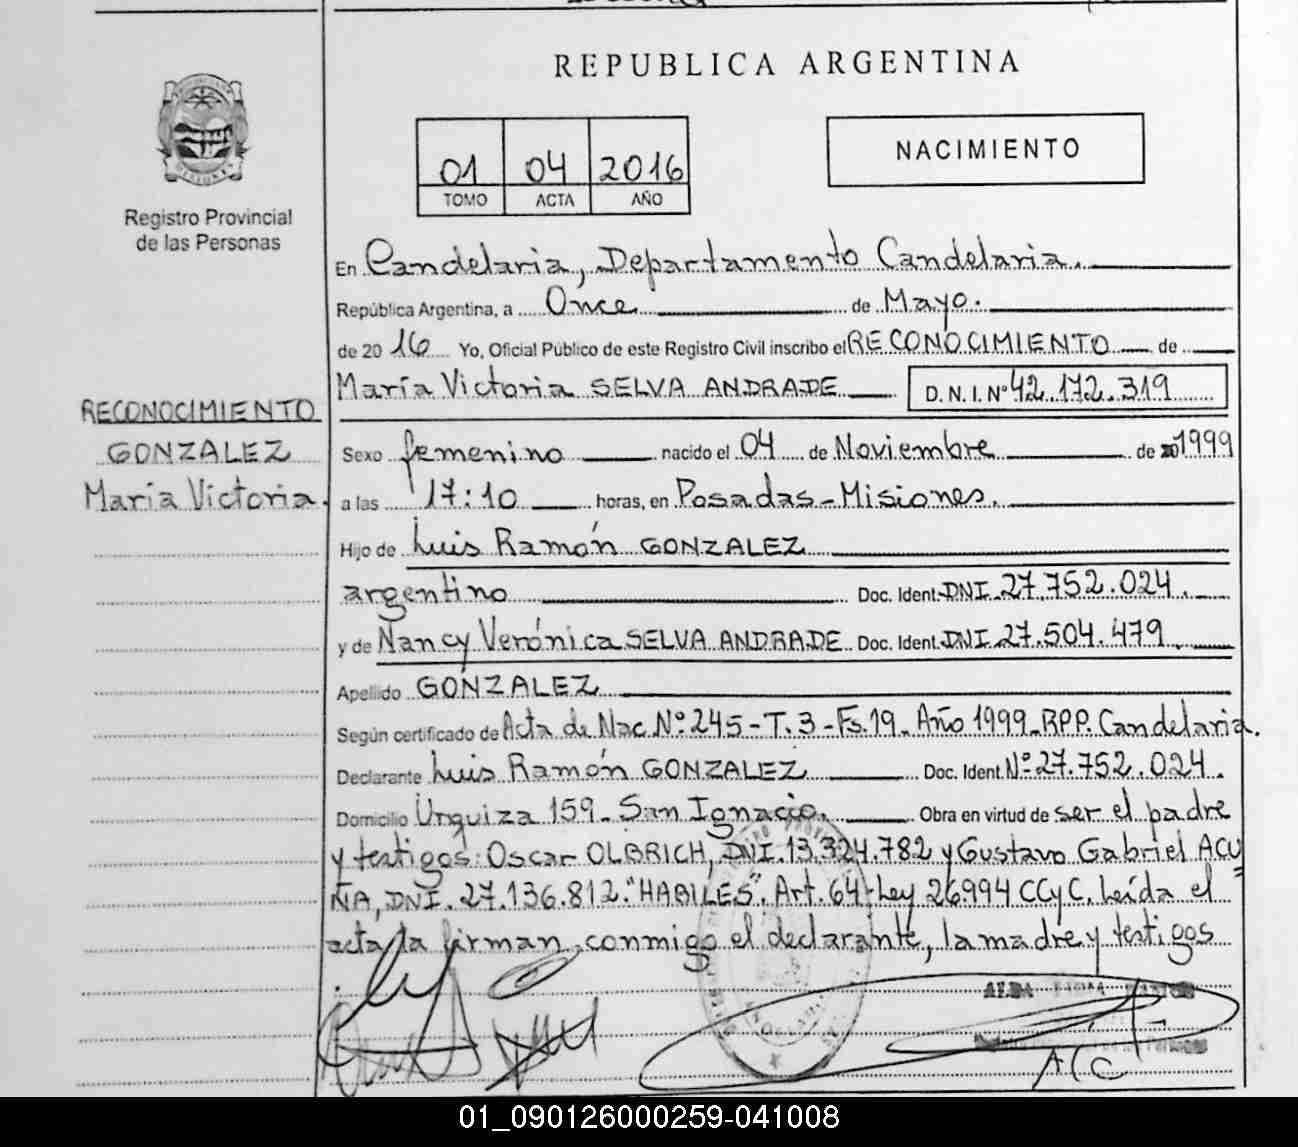 REPUBLICA ARGENTINA
01 04 2016
TOMO ACTA AÑO
NACIMIENTO
Registro Provincial
de las Personas
En Candelaria, Departamento Candelaria.
República Argentina, a Once de Mayo.
de 2016 Yo, Oficial Público de este Registro Civil inscribo el RECONOCIMIENTO de
María Victoria SELVA ANDRADE D.N.I. Nº 42.172.319
RECONOCIMIENTO
GONZALEZ
María Victoria.
Sexo femenino nacido el 04 de Noviembre de 1999
a las 17:10 horas, en Posadas-Misiones.
Hijo de Luis Ramón GONZALEZ
argentino Doc. Ident. DNI. 27.752.024.
y de Nancy Verónica SELVA ANDRADE Doc. Ident. DNI 27.504.479
Apellido GONZALEZ
Según certificado de Acta de Nac. Nº 245-T.3-Fs.19. Año 1999. RPP. Candelaria.
Declarante Luis Ramón GONZALEZ Doc. Ident. Nº 27.752.024.
Domicilio Urquiza 159. San Ignacio. Obra en virtud de ser el padre
y testigos: Oscar OLBRICH, DNI. 13.324.782 y Gustavo Gabriel ACU
ÑA, DNI. 27.136.812. "HABILES". Art. 64-Ley 26.994 CCyC. Leída el
acta la firman conmigo el declarante, la madre y testigos
.
ALBA
01_090126000259-041008